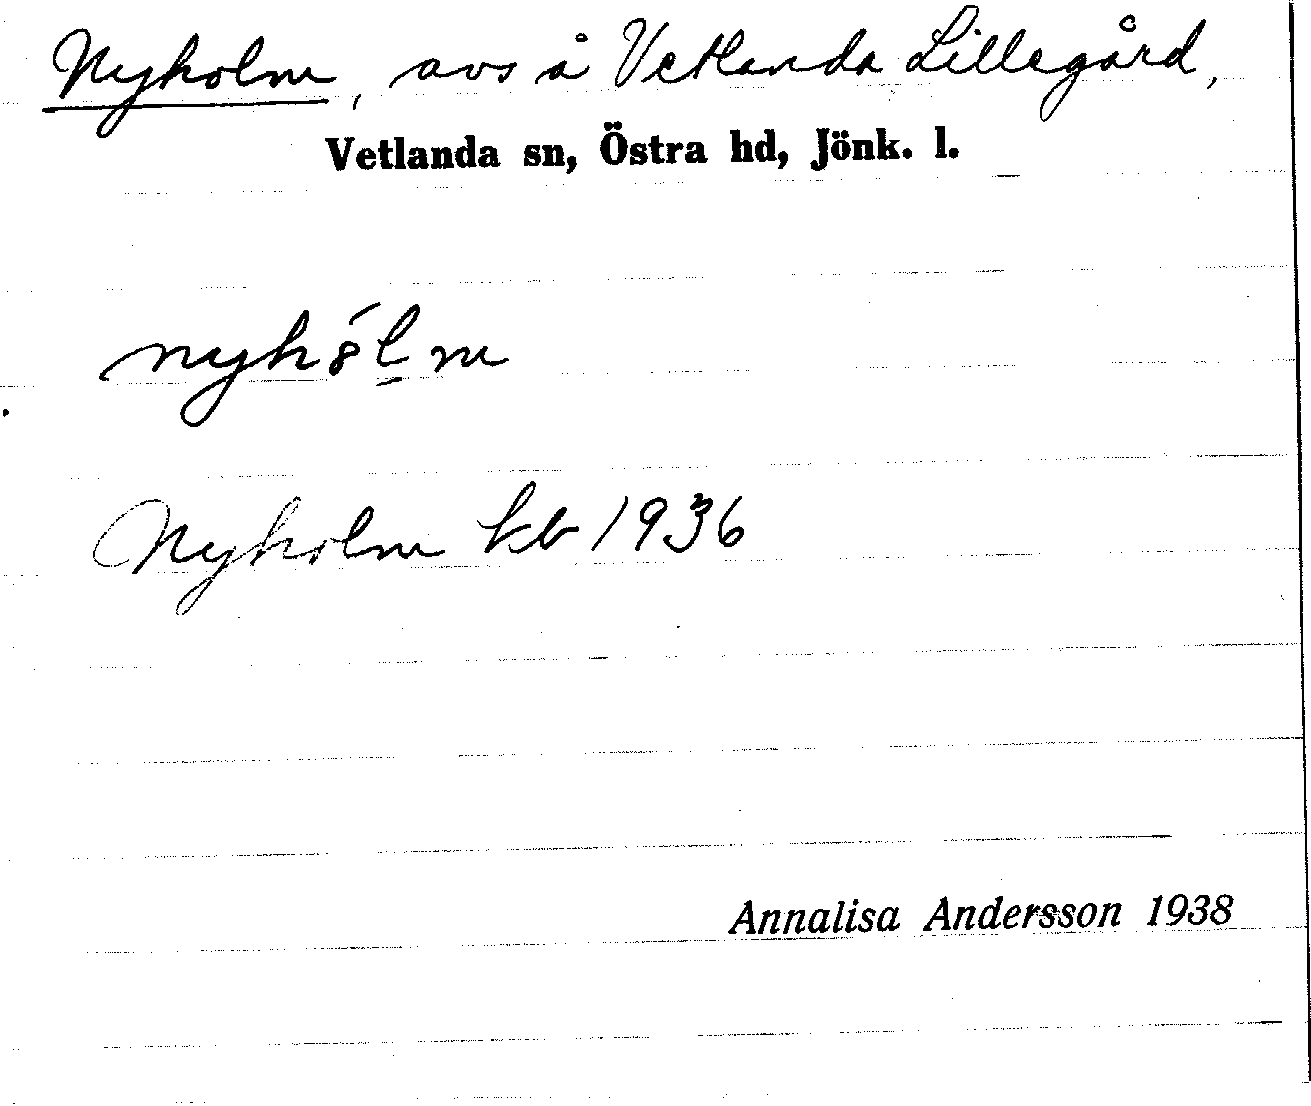 Nyholm, avs å Vetlanda Lillegård,
Vetlanda sn, Östra hd, Jönk. l.
Nyholm kb 1936
Annalisa Andersson 1938